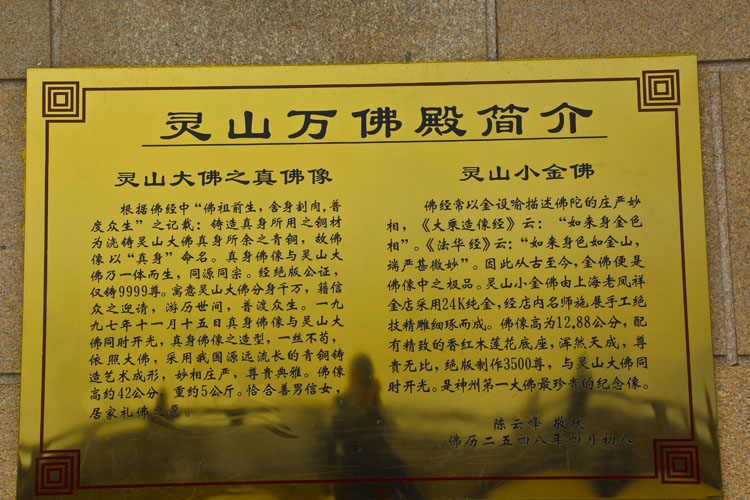 灵山万佛殿简介
灵山大佛之真佛像
根据佛经中“佛祖前生，舍身割肉，普
度众生”之记载：铸造真身所用之铜材
为浇铸灵山大佛真身所余之青铜，故佛
像以“真身”命名。真身佛像与灵山大
佛乃一体而生，同源同宗。经绝版公证，
仅铸9999尊。寓意灵山大佛分身千万，藉信
众之迎请，游历世间，普渡众生。一九
九七年十一月十五日真身佛像与灵山大
佛同时开光，真身佛像之造型，一丝不苟，
依照大佛，采用我国源远流长的青铜铸
造艺术成形，妙相庄严，尊贵典雅。佛像
高约42公分，重约5公斤。恰合善男信女，
居家礼佛之愿。
灵山小金佛
佛经常以金设喻描述佛陀的庄严妙
相，《大乘造像经》云：“如来身金色
相”。《法华经》云：“如来身色如金山，
端严甚微妙”。因此从古至今，金佛便是
佛像中之极品。灵山小金佛由上海老凤祥
金店采用24K纯金，经店内名师施展手工绝
技精雕细琢而成。佛像高为12.88公分，配
有精致的香红木莲花底座，浑然天成，尊
贵无比，绝版制作3500尊，与灵山大佛同
时开光。是神州第一大佛最珍贵的纪念像。
陈云峰 敬撰
佛历二五四八年四月初八